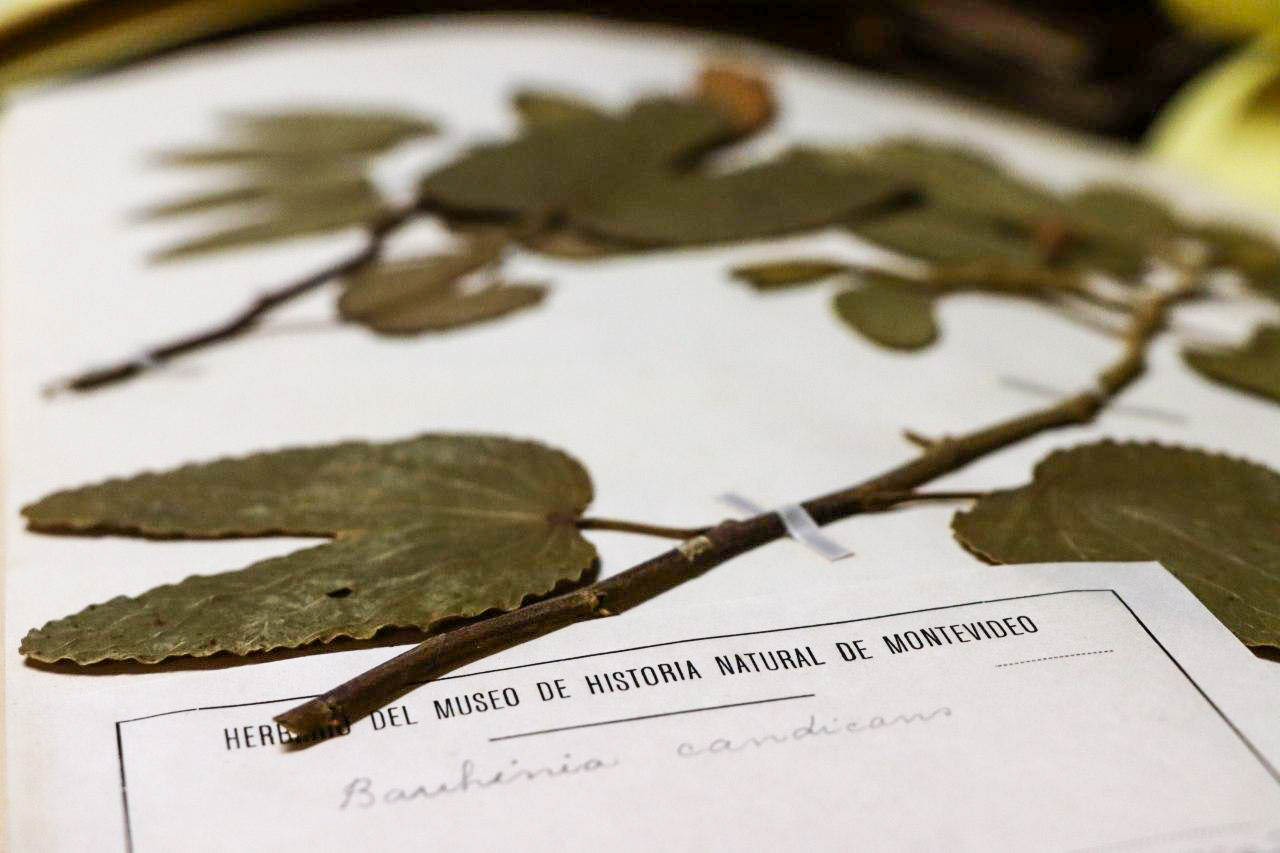 HERBARIO DEL MUSEO DE HISTORIA NATURAL DE MONTEVIDEO
Bauhinia candicans